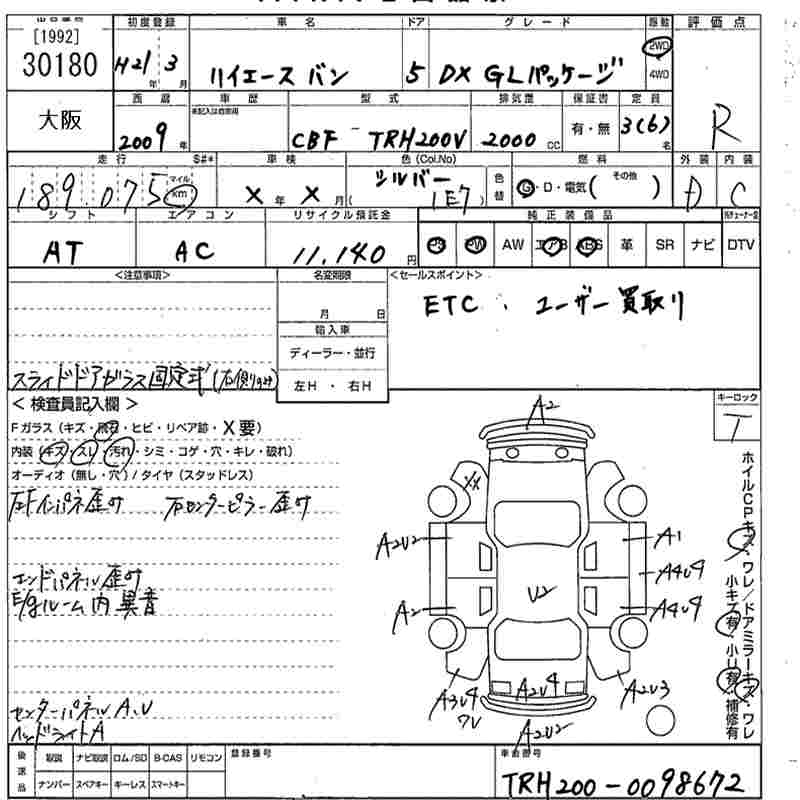 [1992]
30180
大阪
初度登録
H21年3月
車名
ハイエース バン
ドア
5
グレード
DX GLパッケージ
駆動
2WD
4WD
評価点
R
西暦
2009年
車歴
未記入は自家用
型式
CBF-TRH200V
排気量
2000cc
保証書
有・無
定員
3(6)名
走行 S#*
189,075 マイル km
車検
X年X月
色(Col.No)
シルバー
(1E7)
色替
燃料
G・D・電気( その他 )
外装
D
内装
C
シフト
AT
エアコン
AC
リサイクル預託金
11,140円
純正装備品
PS
PW
AW
エアB
ABS
革
SR
ナビ
DTV
<注意事項>
スライドドアガラス固定式(右側リヤ)
名変期限
月 日
輸入車
ディーラー・並行
左H ・ 右H
<セールスポイント>
ETC、ユーザー買取り
<検査員記入欄>
Fガラス(キズ・飛石・ヒビ・リペア跡・X要)
内装(キズ・スレ・汚れ・シミ・コゲ・穴・キレ・破れ)
オーディオ(無し・穴)/タイヤ(スタッドレス)
右Fインパネ歪み 右センターピラー歪み
エンドパネル歪み
E/gルーム内異音
センターパネルA、U
ヘッドライトA
キーロック
T
ホイルCPキズ・ワレ/ドアミラーキズ・ワレ
小キズ有・小U有・補修有
A2
XX
A2U2
A1
A4U4
U2
A2
A4U4
A3U4
ワレ
A2U4
A2U3
A2U2
後送品
取説
ナビ取説
ロム/SD
B-CAS
リモコン
ナンバー
スペアキー
キーレス
スマートキー
登録番号
車台番号
TRH200-0098672